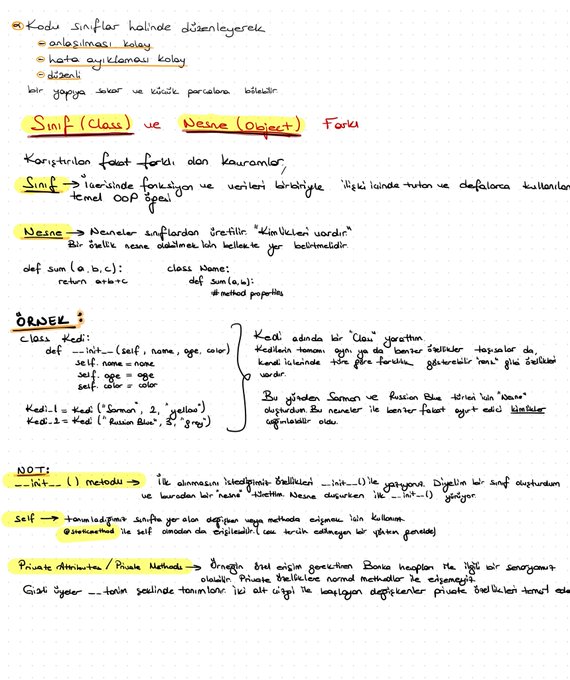 Kodu sınıflar halinde düzenleyerek
anlaşılması kolay
hata ayıklaması kolay
düzenli
bir yapıya sokar ve küçük parçalara bölebilir.
Sınıf (Class) ve Nesne (Object) Farkı
Karıştırılan fakat farklı olan kavramlar,
Sınıf → İçerisinde fonksiyon ve verileri birbiriyle ilişki içinde tutan ve defalarca kullanılan
temel OOP öğesi
Nesne → Nesneler sınıflardan üretilir. "Kimlikleri vardır."
Bir özellik nesne olabilmek için bellekte yer belirtmelidir.
def sum (a, b, c): class Name:
return a+b+c def sum (a, b):
# method properties
ÖRNEK :
class Kedi:
def __init__ (self, name, age, color)
self. name = name
self. age = age
self. color = color
Kedi_1 = Kedi ("Sarman", 2, "yellow")
Kedi_2 = Kedi ("Russian Blue", 3, "grey")
Kedi adında bir "Class" yarattım.
Kedilerin tamamı aynı ya da benzer özellikler taşısalar da,
kendi içlerinde türe göre farklılık gösterebilir "renk" gibi özellikleri
vardır.
Bu yüzden Sarman ve Russian Blue türleri için "Nesne"
oluşturdum. Bu nesneler ile benzer fakat ayırt edici kimlikler
çağrılabilir oldu.
NOT:
__init__ () metodu → İlk alınmasını istediğimiz özellikleri __init__() ile yazıyoruz. Diyelim bir sınıf oluşturdum
ve buradan bir "nesne" türettim. Nesne oluşurken ilk __init__() çalışıyor.
self → tanımladığımız sınıfta yer alan değişken veya methoda erişmek için kullanılır.
@staticmethod ile self olmadan da erişilebilir. ( çok tercih edilmeyen bir yöntem genelde)
Private Attributes / Private Methods → Örneğin özel erişim gerektiren Banka hesapları ile ilgili bir senaryomuz
olabilir. Private özelliklere normal methodlar ile erişemeyiz.
Gizli üyeler __ tanım şeklinde tanımlanır. iki alt çizgi ile başlayan değişkenler private özellikleri temsil ede